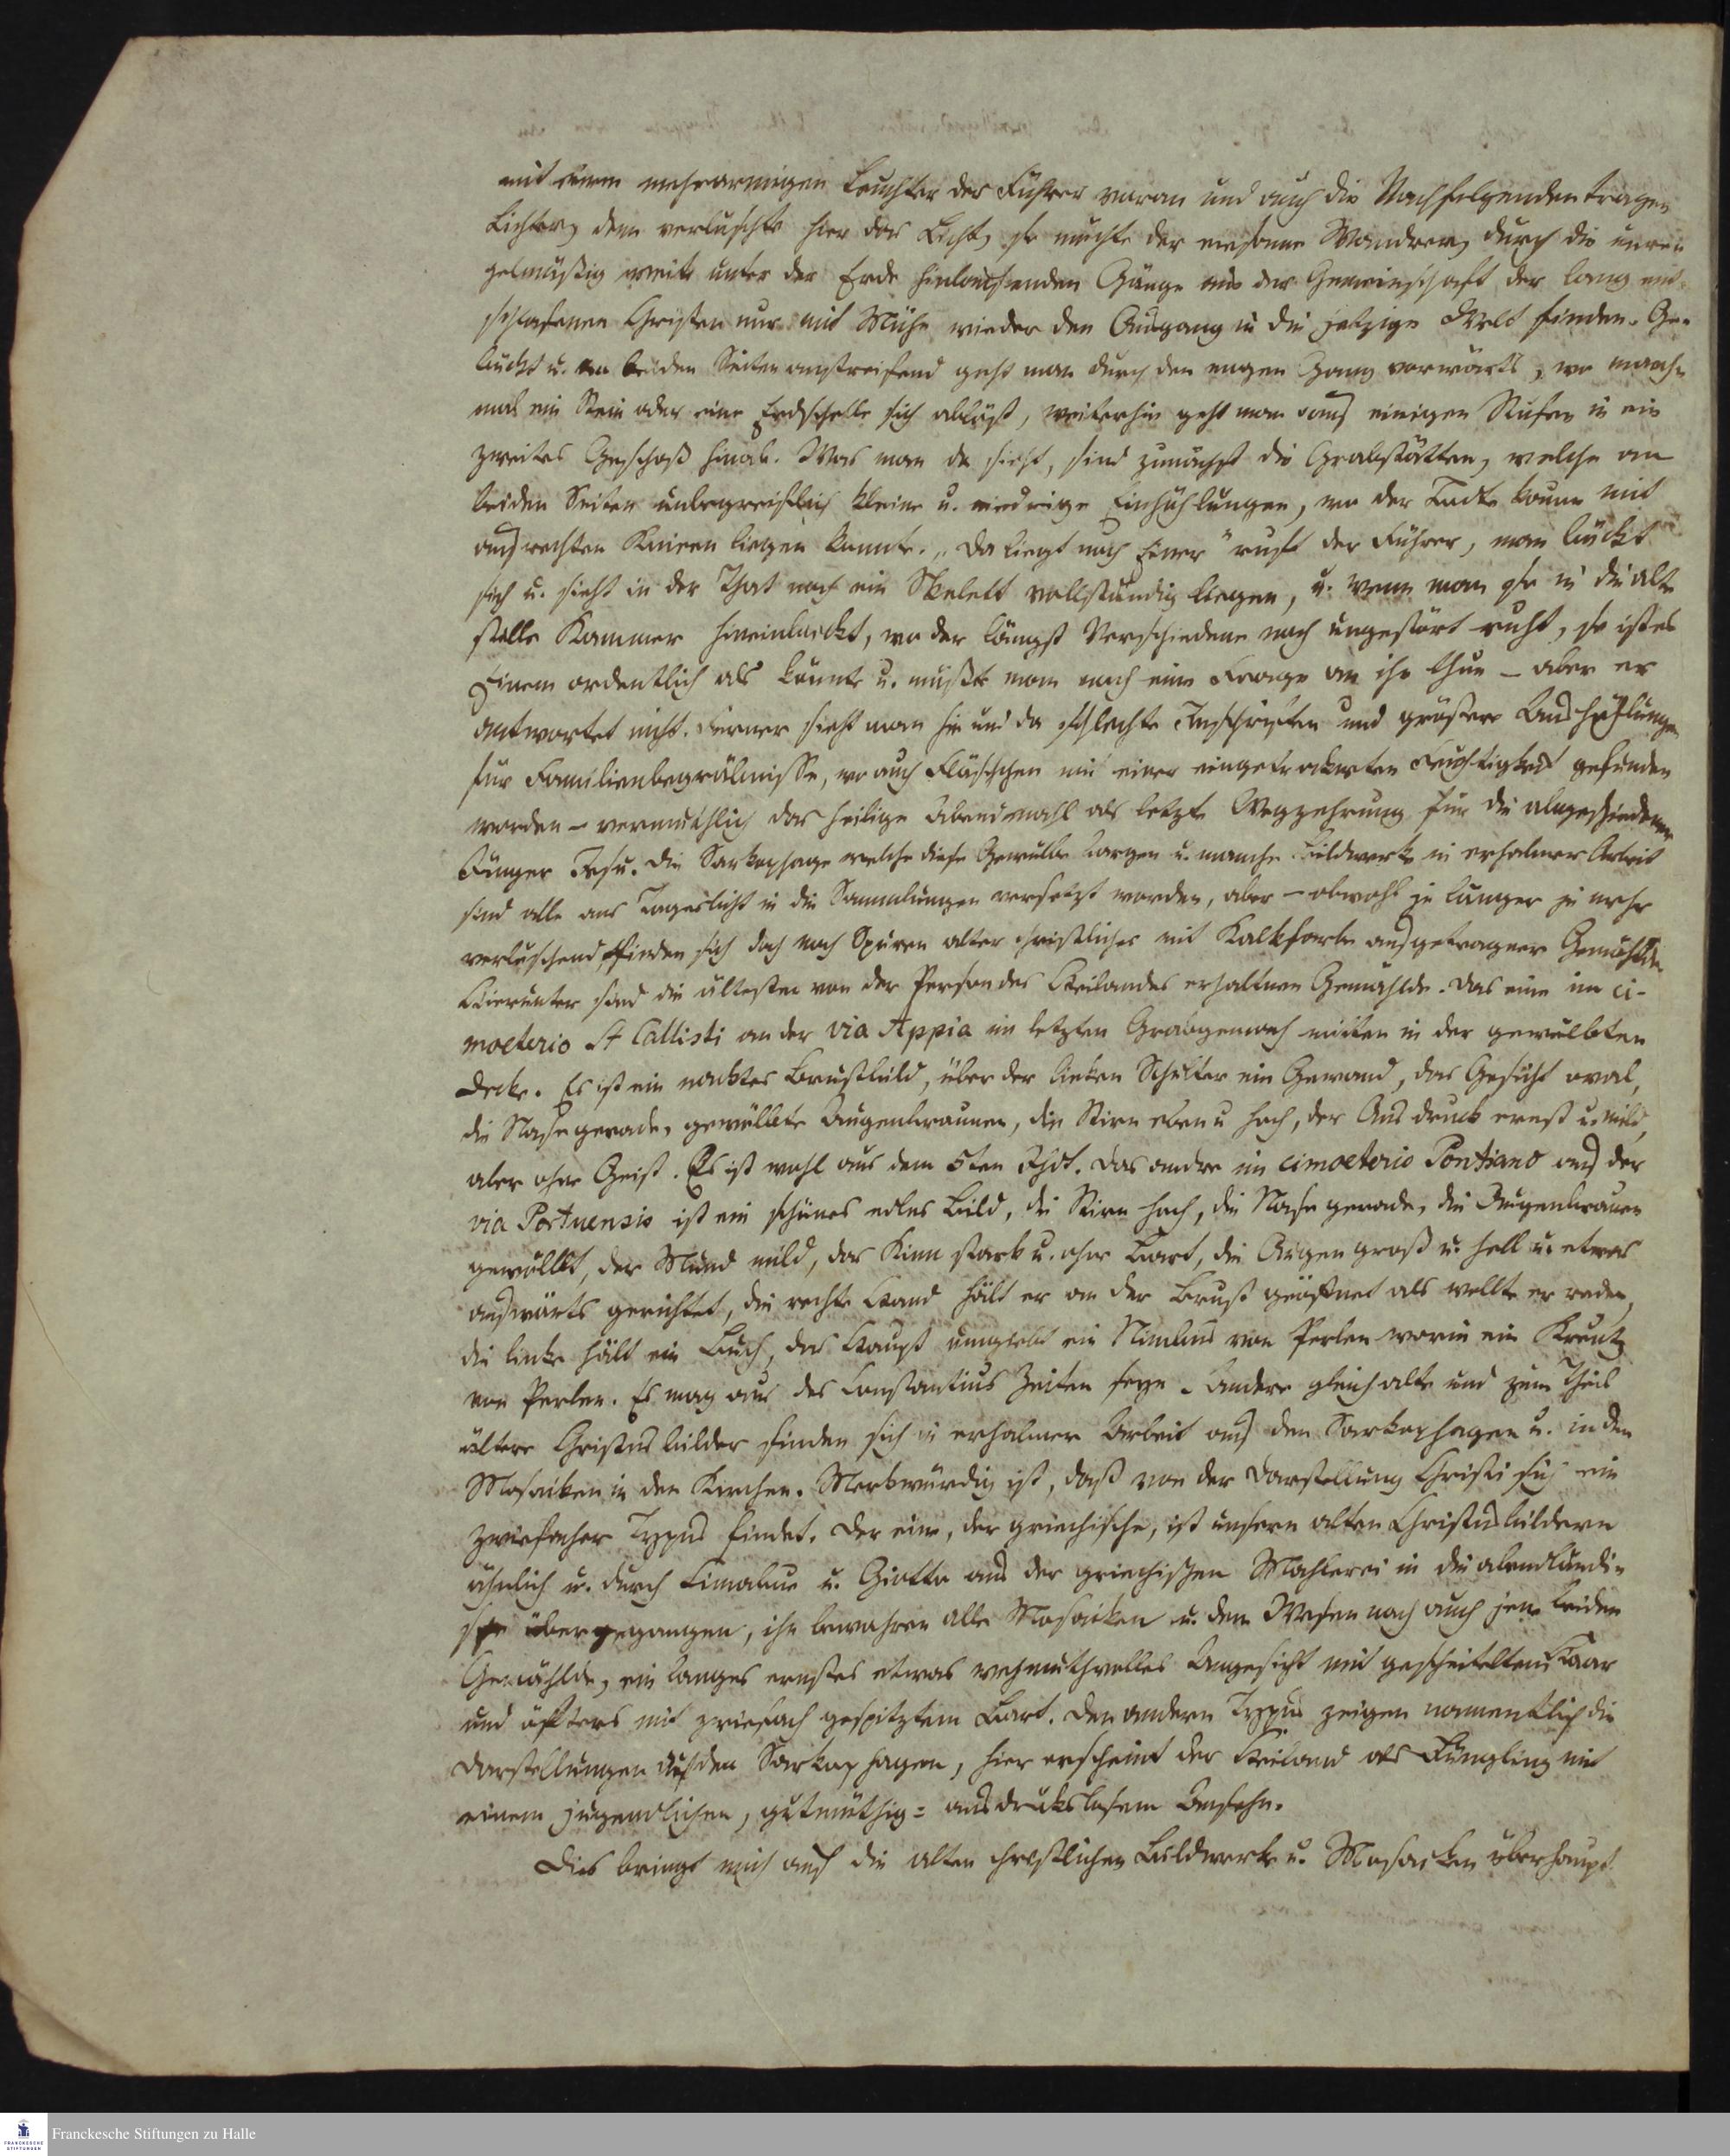 mit einem mehrarmigen Leuchter der Führer voran und auch die Nachfolgenden tragen
Lichter, denn verlöschte hier das Licht, so möchte der einsame Wandrer, durch die unre-
gelmäßig weit unter der Erde hinlaufenden Gänge aus der Gemeinschaft der lang ent-
schlafenen Christen nur mit Mühe wieder den Ausgang in die jetzige Welt finden. Ge-
bückt u. an beiden Seiten anstreifend geht man durch den engen Gang vorwärts, wo manch-
mal ein Stein oder eine Erdscholle sich ablöst, weiterhin geht man auf einigen Stufen in ein
zweites Geschoß hinab. Was man da sieht, sind zunächst die Grabstätten, welche an
beiden Seiten unbegreiflich kleine u. niedrige Einhöhlungen, wo der Todte kaum mit
aufrechten Knieen liegen konnte. „Da liegt noch Einer" ruft der Führer, man bückt
sich u. sieht in der That noch ein Skelett vollständig liegen, u. wenn man so in die alte
stille Kammer hineinblickt, wo der längst Verschiedene noch ungestört ruht, so ist es
Einem ordentlich als könnte u. müßte man noch eine Frage an ihn thun – aber er
antwortet nicht. Ferner sieht man hie und da schlechte Inschriften und größere Aushöhlungen
für Familienbegräbnisse, wo auch Fläschchen mit einer eingetrockneten Feuchtigkeit gefunden
worden – vermuthlich das heilige Abendmahl als letzte Wegzehrung für die abgeschiedenen
Jünger Jesu. Die Sarkophage welche diese Gewölbe bargen u. manche Bildwerke in erhabner Arbeit
sind alle ans Tageslicht in die Sammlungen versetzt worden, aber – obwohl je länger je mehr
verlöschend finden sich doch noch Spuren alter christlicher mit Kalkfarbe aufgetragner Gemählde.
Hierunter sind die ältesten von der Person des Heilandes erhaltnen Gemählde. Das eine im ci-
moeterio St Callisti an der via Appia im letzten Grabgemach mitten in der gewölbten
Decke. Es ist ein nacktes Brustbild, über der linken Schulter ein Gewand, das Gesicht oval,
die Nase gerade, gewölbte Augenbraunen, die Stirn eben u hoch, der Ausdruck ernst u. mild,
aber ohne Geist. Es ist wohl aus dem 5ten Jhdt. Das andre im cimoeterio Pontiano auf der
via Portuensis ist ein schönes edles Bild, die Stirn hoch, die Nase gerade, die Augenbrauen
gewölbt, der Mund mild, das Kinn stark u. ohne Bart, die Augen groß u. hell u. etwas
aufwärts gerichtet, die rechte Hand hält er an der Brust geöffnet als wollte er reden,
die linke hält ein Buch, das Haupt umgiebt ein Nimbus von Perlen worin ein Kreutz
von Perlen. Es mag aus des Constantius Zeiten seyn. Andere gleich alte und zum Theil
ältere Christusbilder finden sich in erhabner Arbeit auf den Sarkophagen u. in den
Mosaiken in den Kirchen. Merkwürdig ist, daß von der Darstellung Christi sich ein
zwiefacher Typus findet. Der eine, der griechische, ist unsern alten Christusbildern
ähnlich u. durch Cimabue u. Giotto aus der griechischen Mahlerei in die abendländi-
sche übergegangen, ihn bewahren alle Mosaiken u. dem Wesen nach auch jene beiden
Gemählde, ein langes ernstes etwas wehmuthvolles Angesicht mit gescheiteltem Haar
und öfters mit zwiefach gespitztem Bart. Den andern Typus zeigen namentlich die
Darstellungen auf den Sarkophagen, hier erscheint der Heiland als Jüngling mit
einem jugendlichen, gutmüthig= ausdruckslosem Ansehn.
Dies bringt mich auf die alten christlichen Bildwerke u. Mosaiken überhaupt.
Franckesche Stiftungen zu Halle
FRANCKESCHE
STIFTUNGEN